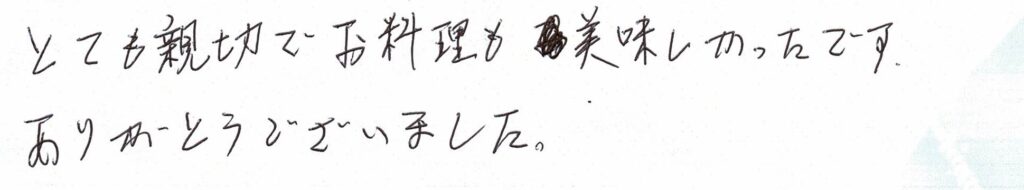 とても親切でお料理も美味しかったです.
ありがとうございました。